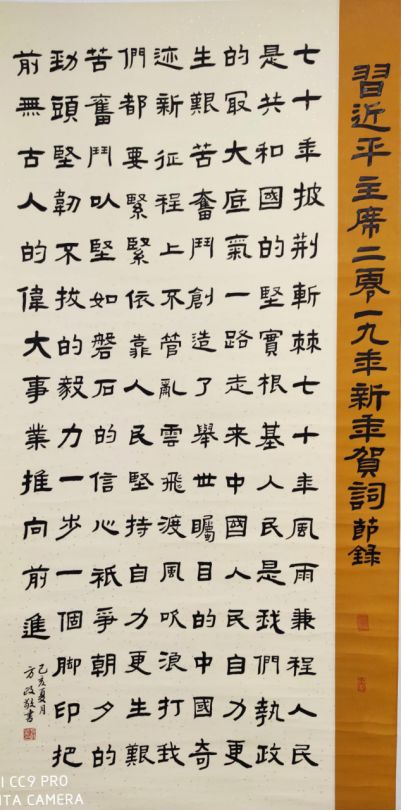 習近平主席二零一九年新年賀詞節錄
七十年披荆斬棘七十年風雨兼程人民
是共和國的堅實根基人民是我們執政
的最大底氣一路走來中國人民自力更
生艱苦奮鬥創造了舉世矚目的中國奇
迹新征程上不管亂雲飛渡風吹浪打我
們都要緊緊依靠人民堅持自力更生艱
苦奮鬥以堅如磐石的信心衹爭朝夕的
勁頭堅韌不拔的毅力一步一個脚印把
前無古人的偉大事業推向前進
己亥夏月
方政敬書
I CC9 PRO
ITA CAMERA